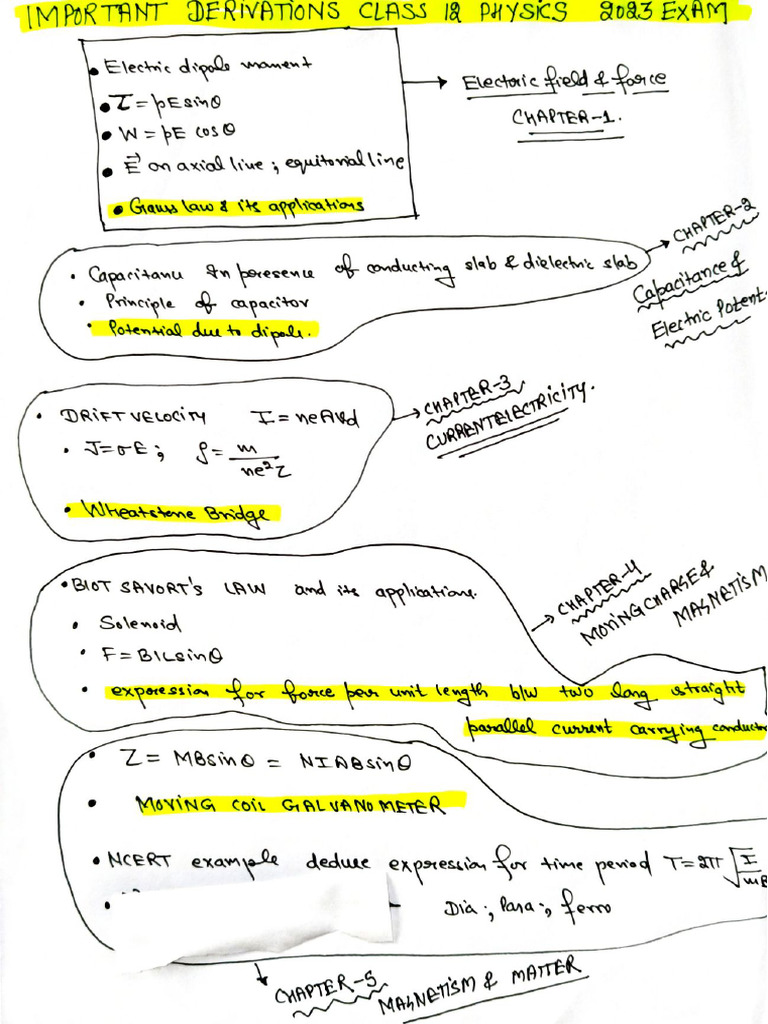 IMPORTANT DERIVATIONS CLASS 12 PHYSICS 2023 EXAM
• Electric dipole moment
• τ = pEsinθ
• W = pE cosθ
• E⃗ on axial line ; equitorial line
• Gauss law & its applications
Electric field & force
CHAPTER-1.
• Capacitance In presence of conducting slab & dielectric slab
• Principle of capacitor
• Potential due to dipole.
CHAPTER-2
Capacitance &
Electric Potent.
• DRIFT VELOCITY I = neAVd
• J=σE ; ρ = m/ne²τ
• Wheatstone Bridge
CHAPTER-3
CURRENT ELECTRICITY.
• BIOT SAVORT'S LAW and its applications.
• Solenoid
• F = BILsinθ
• expression for force per unit length b/w two long straight
parallel current carrying conductor
CHAPTER-4
MOVING CHARGE &
MAGNETISM
• τ = MBsinθ = NIABsinθ
• MOVING COIL GALVANOMETER
• NCERT example deduce expression for time period T = 2π √I/mB
• Dia ; Para ; ferro
CHAPTER-5
MAGNETISM & MATTER